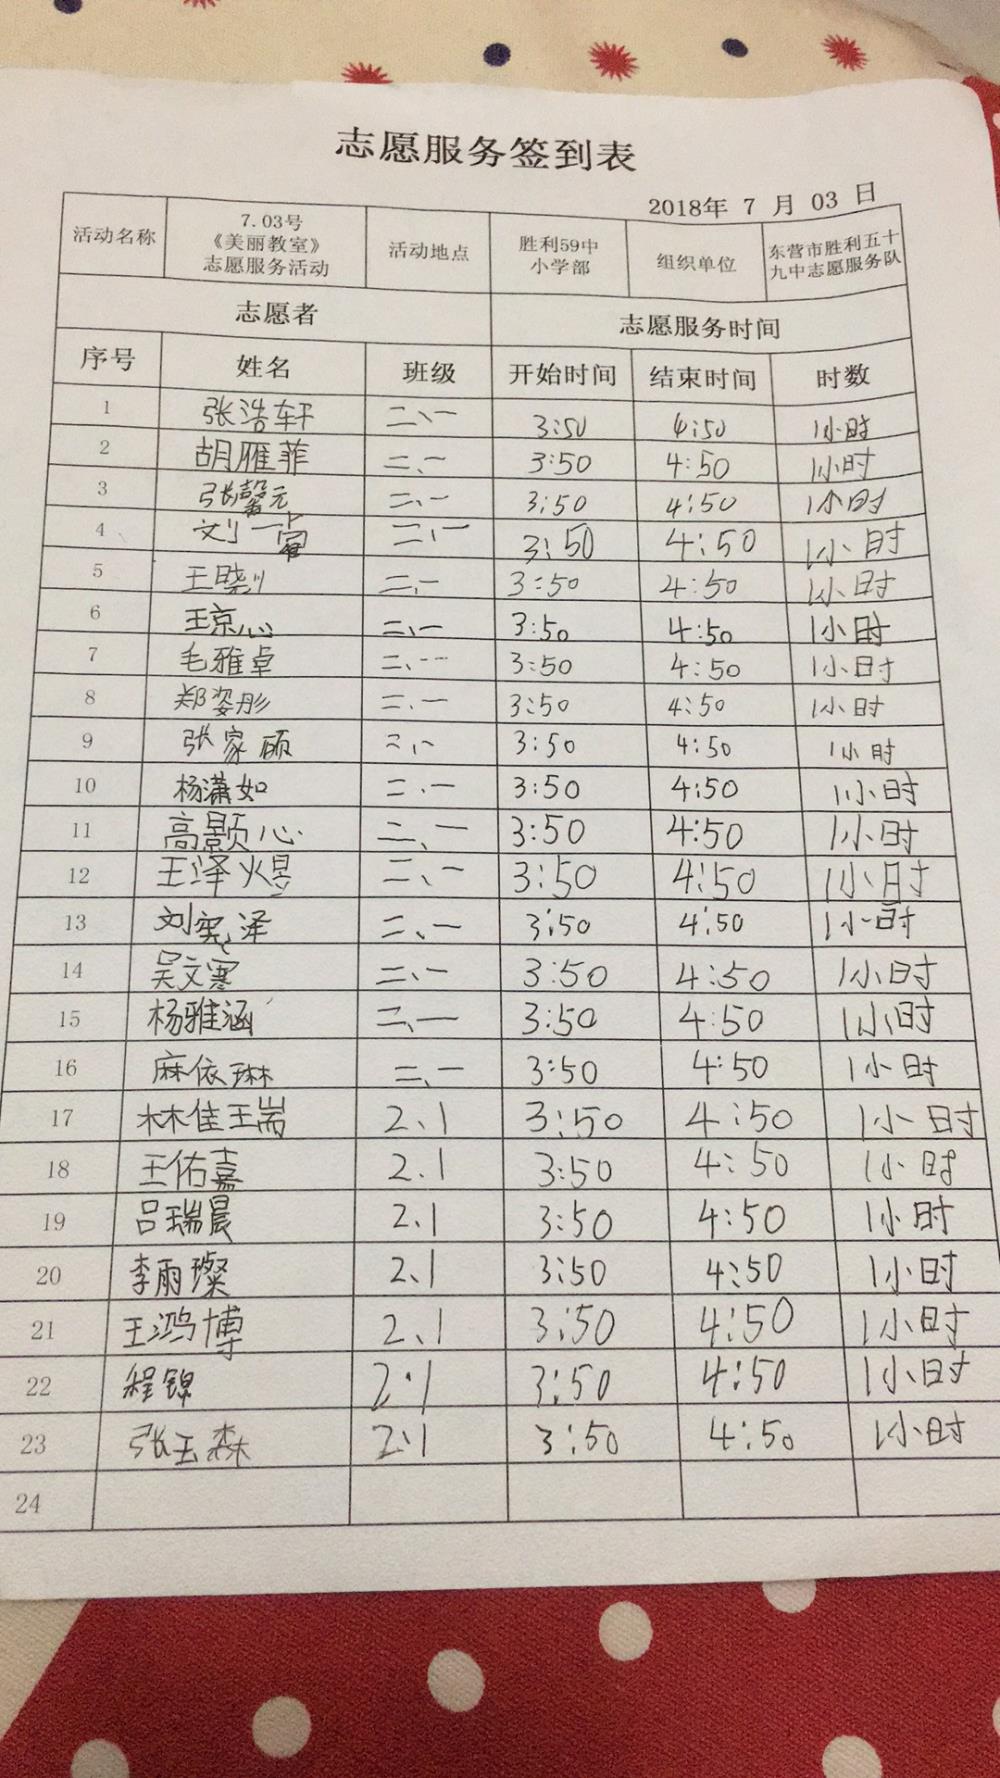 志愿服务签到表
2018年 7 月 03 日
活动名称 7.03号《美丽教室》志愿服务活动 活动地点 胜利59中小学部 组织单位 东营市胜利五十九中志愿服务队
志愿者 志愿服务时间
序号 姓名 班级 开始时间 结束时间 时数
1 张浩轩 二、一 3:50 4:50 1小时
2 胡雁菲 二、一 3:50 4:50 1小时
3 张馨元 二、一 3:50 4:50 1小时
4 刘一 二、一 3:50 4:50 1小时
5 王晓 二、一 3:50 4:50 1小时
6 王京心 二、一 3:50 4:50 1小时
7 毛雅卓 二、一 3:50 4:50 1小时
8 郑姿彤 二、一 3:50 4:50 1小时
9 张家硕 二、一 3:50 4:50 1小时
10 杨潇如 二、一 3:50 4:50 1小时
11 高颢心 二、一 3:50 4:50 1小时
12 王泽煜 二、一 3:50 4:50 1小时
13 刘奕泽 二、一 3:50 4:50 1小时
14 吴文骞 二、一 3:50 4:50 1小时
15 杨雅涵 二、一 3:50 4:50 1小时
16 麻依琳 二、一 3:50 4:50 1小时
17 林佳瑞 2、1 3:50 4:50 1小时
18 王佑嘉 2、1 3:50 4:50 1小时
19 吕瑞晨 2、1 3:50 4:50 1小时
20 李雨璨 2、1 3:50 4:50 1小时
21 王鸿博 2、1 3:50 4:50 1小时
22 程锦 2·1 3:50 4:50 1小时
23 张玉森 2·1 3:50 4:50 1小时
24